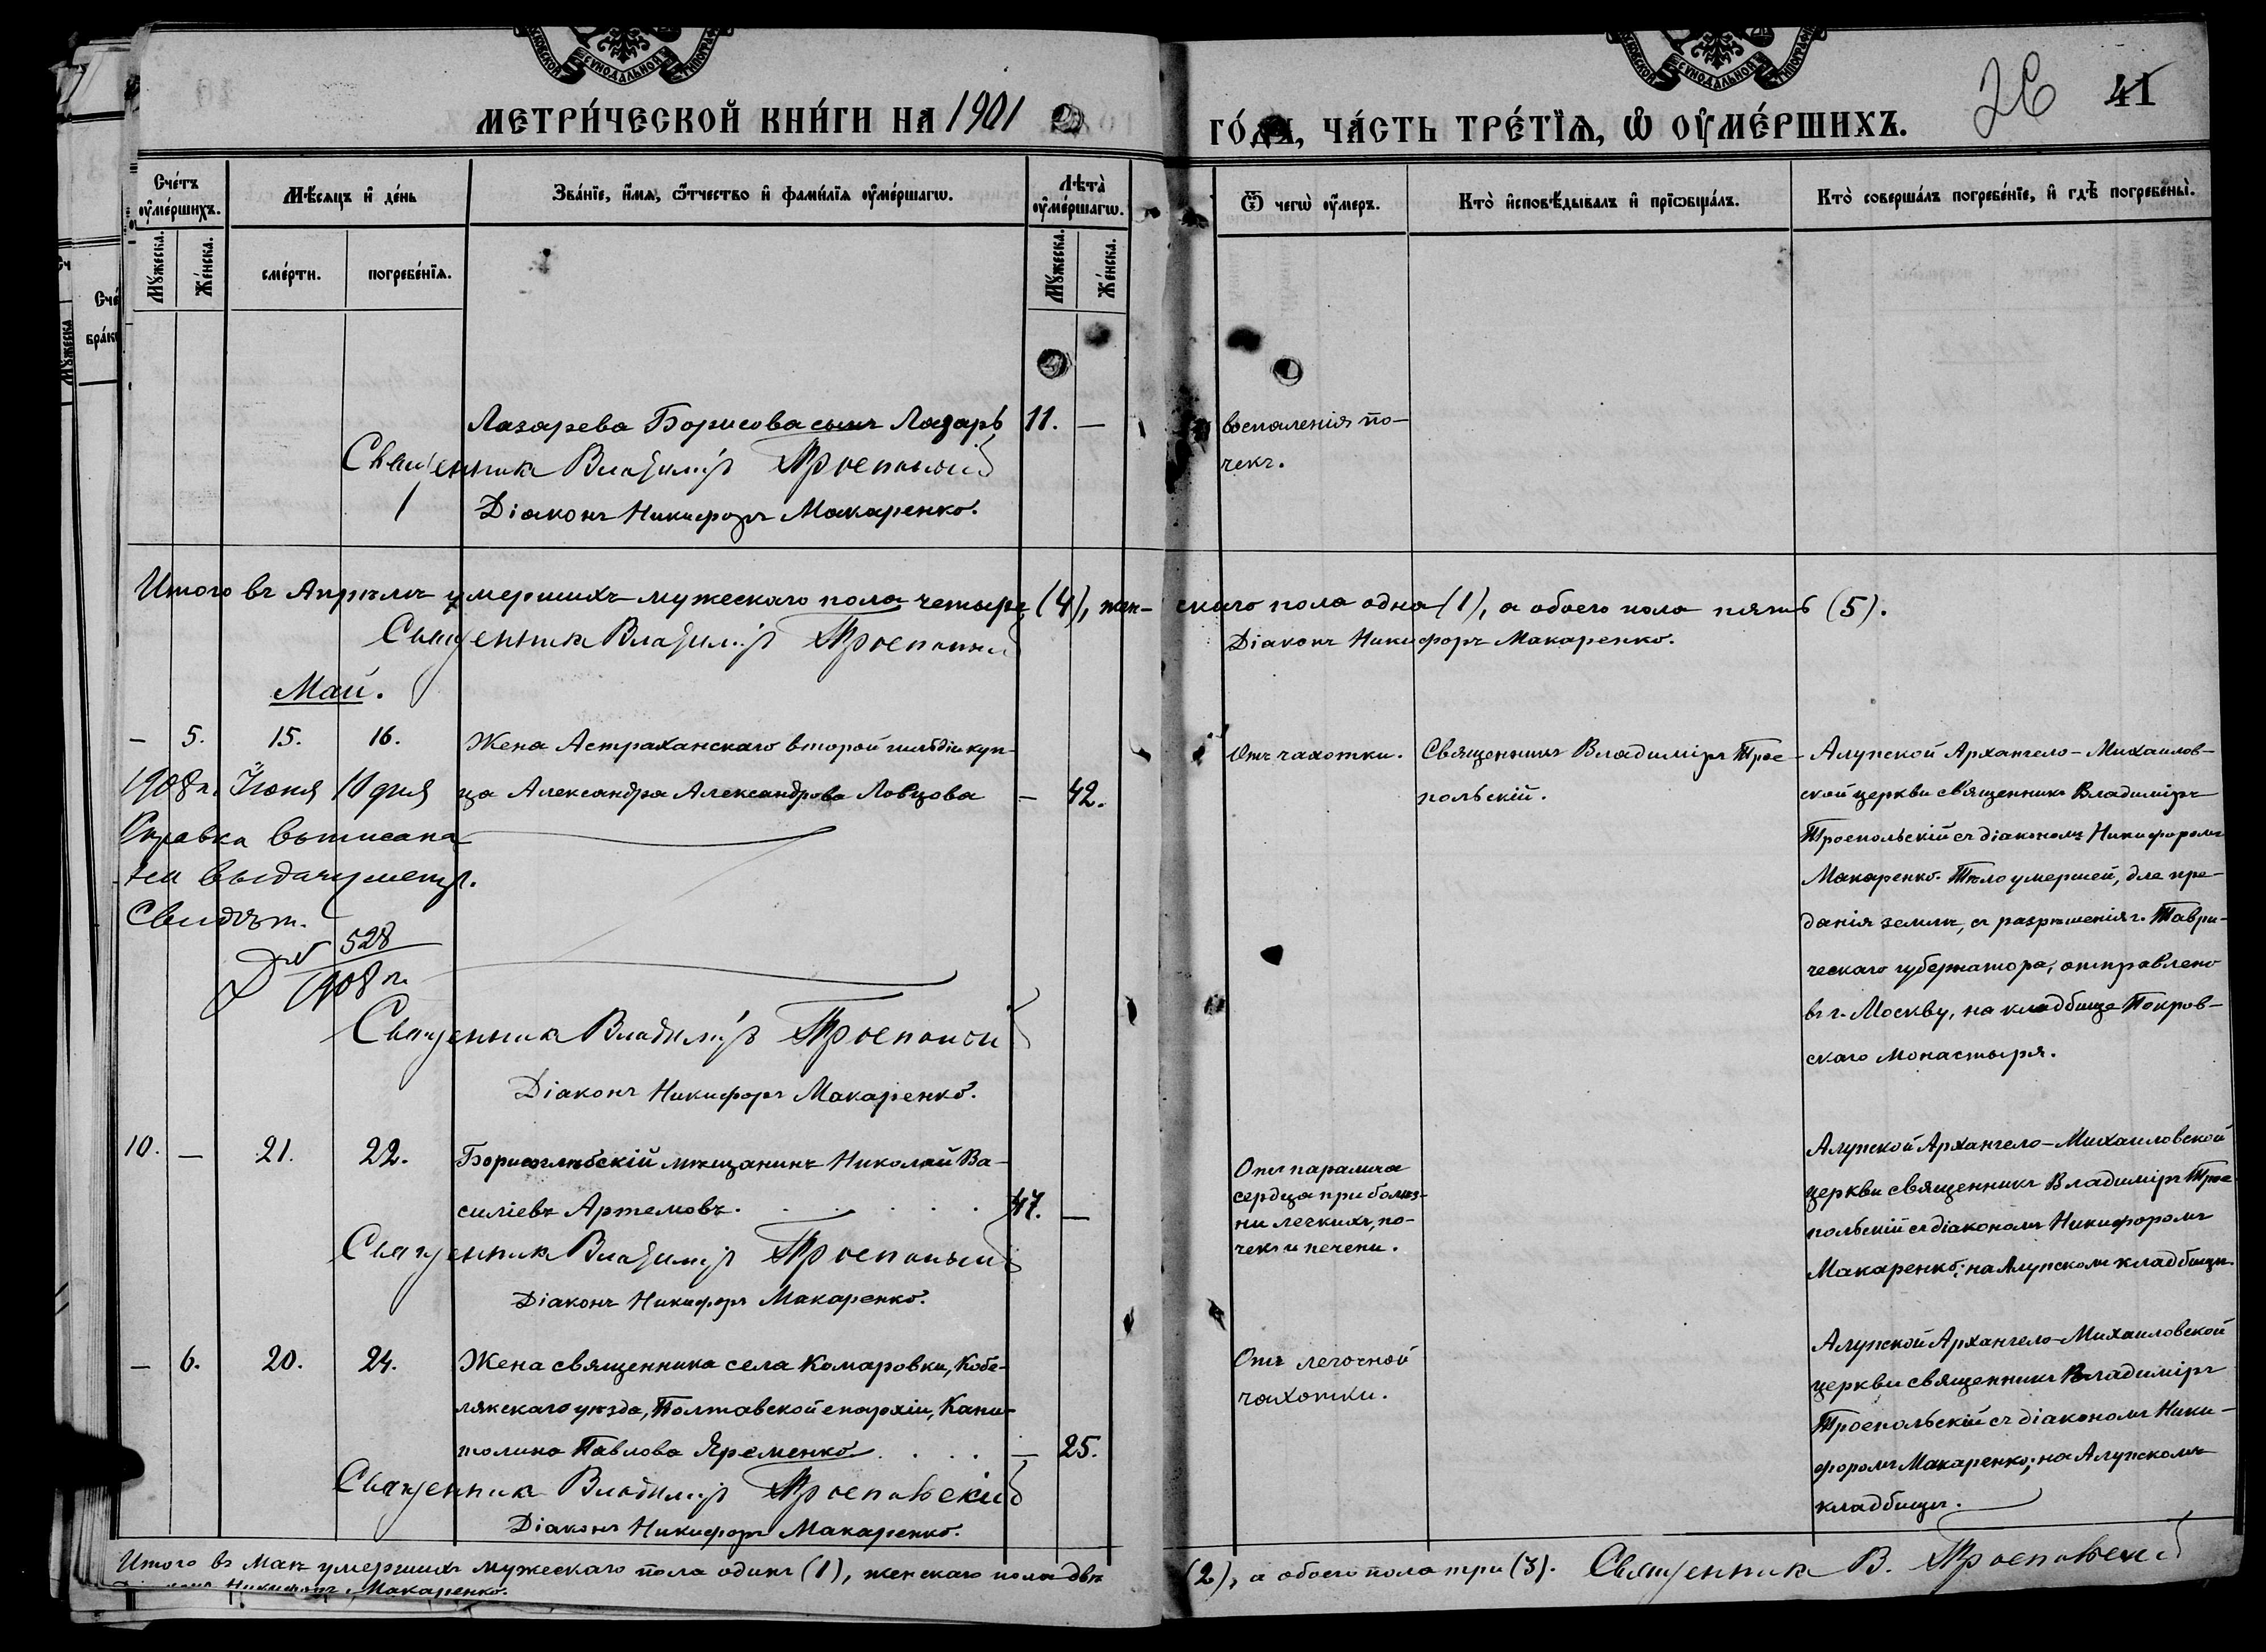 СѴНОДАЛЬНОЙ
СѴНОДАЛЬНОЙ
МЕТРИ́ЧЕСКОЙ КНИ́ГИ НА 1901
ГО́ДА, ЧА́СТЬ ТРЕ́ТЇѦ, Ѡ ОУ҆МЕ́РШИХЪ.
26 41
Сче́тъ оу҆ме́ршихъ.
Мѣ́сяцъ и҆ де́нь
Зва́нїе, и҆́мѧ, ѻ҆́тчество и҆ фами́лїѧ оу҆ме́ршагѡ.
Лѣта̀ оу҆ме́ршагѡ.
Ѿ чегѡ̀ оу҆́меръ.
Кто̀ и҆сповѣ́дывалъ и҆ прїѡбща́лъ.
Кто̀ соверша́лъ погребе́нїе, и҆ гдѣ̀ погребены̀.
Мꙋ́жеска.
Же́нска.
сме́рти.
погребе́нїѧ.
Мꙋ́жеска.
Же́нска.
Лазарева Борисова сынъ Лазарь 11. —
воспаленія по-
чекъ.
Священникъ Владиміръ Троепольскій
Діаконъ Никифоръ Макаренко.
Итого въ Апрѣлѣ умершихъ мужескаго пола четыре (4), жен-
скаго пола одна (1), а обоего пола пять (5).
Священникъ Владиміръ Троепольскій
Діаконъ Никифоръ Макаренко.
Май.
— 5. 15. 16. Жена Астраханскаго второй гильдіи куп-
ца Александра Александрова Ловцова — 42.
1908 г. Іюня 10 дня
Справка выписана
для выдачи метр.
Свидѣт.
№ 528
1908 г.
Отъ чахотки.
Священникъ Владиміръ Трое-
польскій.
Алупской Архангело-Михаилов-
ской церкви священникъ Владиміръ
Троепольскій съ діакономъ Никифоромъ
Макаренко. Тѣло умершей, для пре-
данія землѣ, съ разрѣшенія г. Таври-
ческаго губернатора, отправлено
въ г. Москву, на кладбище Покров-
скаго монастыря.
Священникъ Владиміръ Троепольскій
Діаконъ Никифоръ Макаренко.
10. — 21. 22. Борисоглѣбскій мѣщанинъ Николай Ва-
силіевъ Артемовъ. 47. —
Отъ паралича
сердца при болѣз-
ни легкихъ, по-
чекъ и печени.
Алупской Архангело-Михаиловской
церкви священникъ Владиміръ Трое-
польскій съ діакономъ Никифоромъ
Макаренко; на Алупскомъ кладбищѣ.
Священникъ Владиміръ Троепольскій
Діаконъ Никифоръ Макаренко.
— 6. 20. 24. Жена священника села Комаровки, Кобе-
лякскаго уѣзда, Полтавской епархіи, Капи-
толина Павлова Яременко — 25.
Отъ легочной
чахотки.
Алупской Архангело-Михаиловской
церкви священникъ Владиміръ
Троепольскій съ діакономъ Ники-
форомъ Макаренко; на Алупскомъ
кладбищѣ.
Священникъ Владиміръ Троепольскій
Діаконъ Никифоръ Макаренко.
Итого въ Маѣ умершихъ мужескаго пола одинъ (1), женскаго пола двѣ
(2), а обоего пола три (3). Священникъ В. Троепольскій
Діаконъ Никифоръ Макаренко.